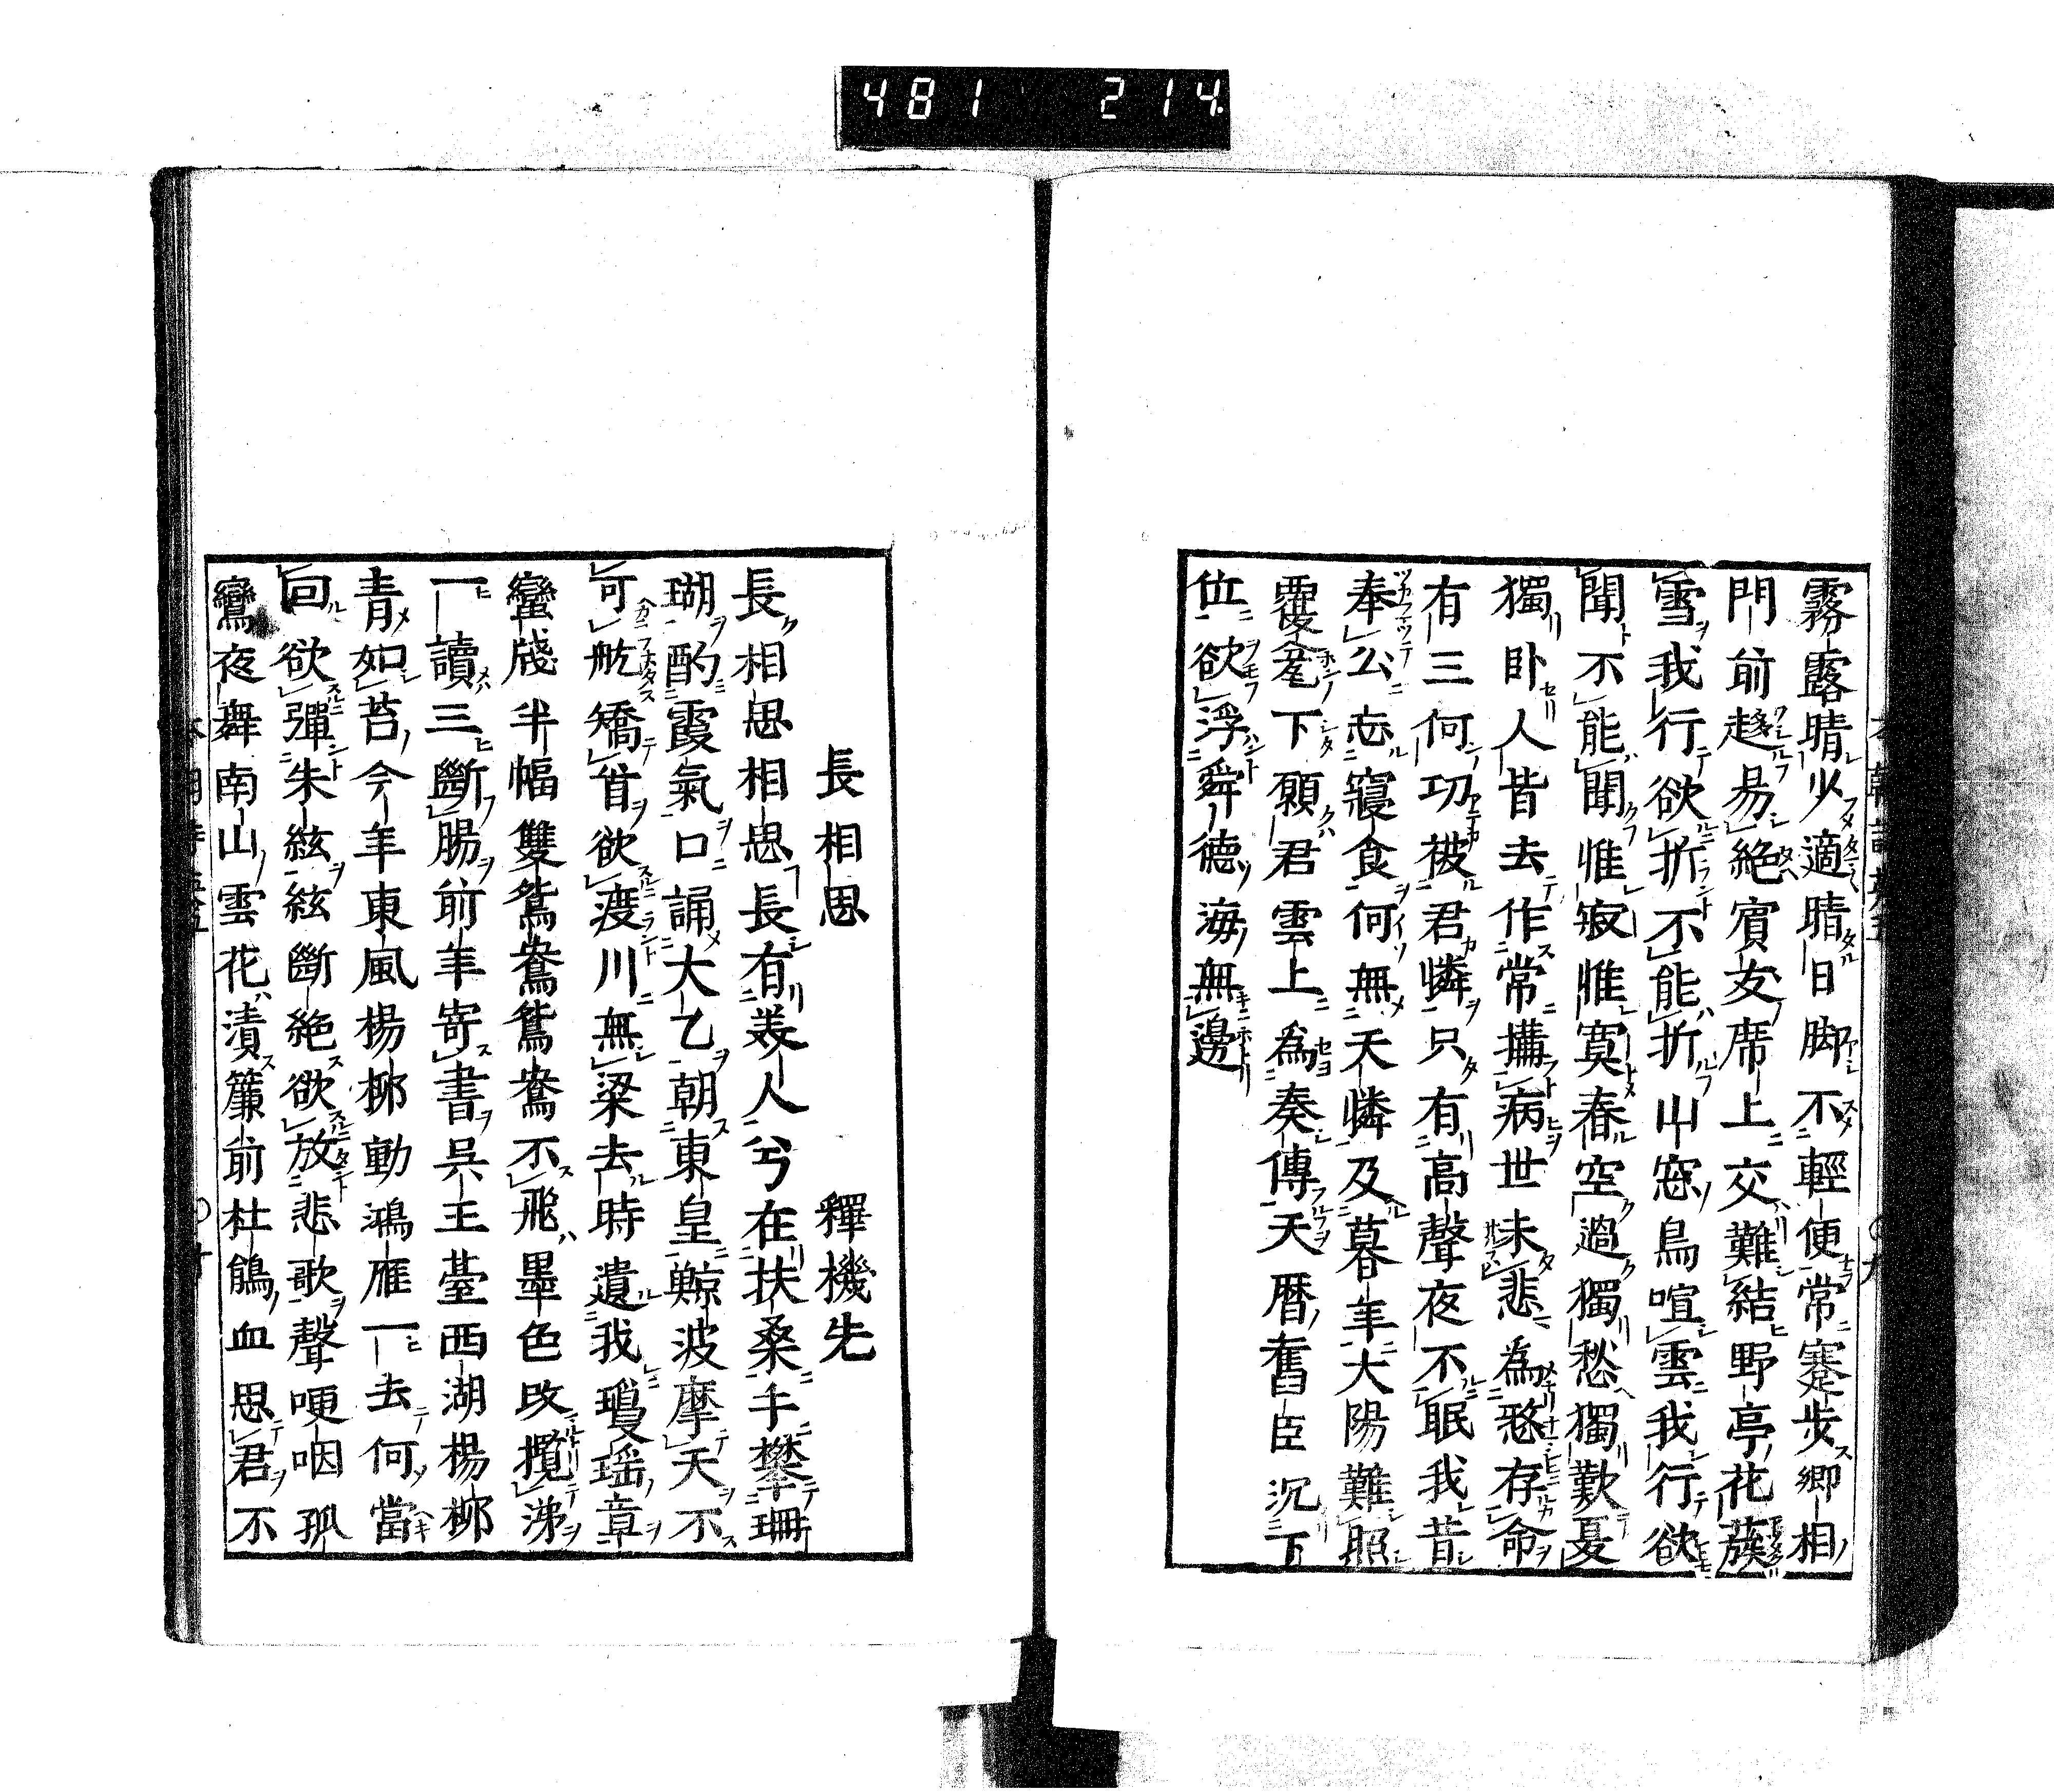 481 214
霧露晴少適晴日脚不輕便常蹇步卿相
門前趍易絕賓友席上交難結野亭花蔟
雪我行欲折不能折山窓鳥喧雲我行欲
聞不能聞惟寂惟寞春空過獨愁獨歎夏
獨臥人皆去作常攜病世未悲為愍存命
有三何功被君憐只有高聲夜不眠我昔
奉公忘寢食何無天憐及暮年大陽難照
覆盆下願君雲上為奏傳天暦舊臣沉下
位欲浮舜德海無邊
長相思 釋機先
長相思相思長有美人兮在扶桑手攀珊
瑚酌霞氣口誦大乙朝東皇鯨波摩天不
可航矯首欲渡川無梁去時遺我瓊瑤章
蠻牋半幅雙鴛鴦鴛鴦不飛墨色改攬涕
一讀三斷腸前年寄書吳王臺西湖楊柳
青如苔今年東風楊柳動鴻雁一去何當
回欲彈朱絃絃斷絕欲放悲歌聲哽咽孤
鸞夜舞南山雲花漬簾前杜鵑血思君不